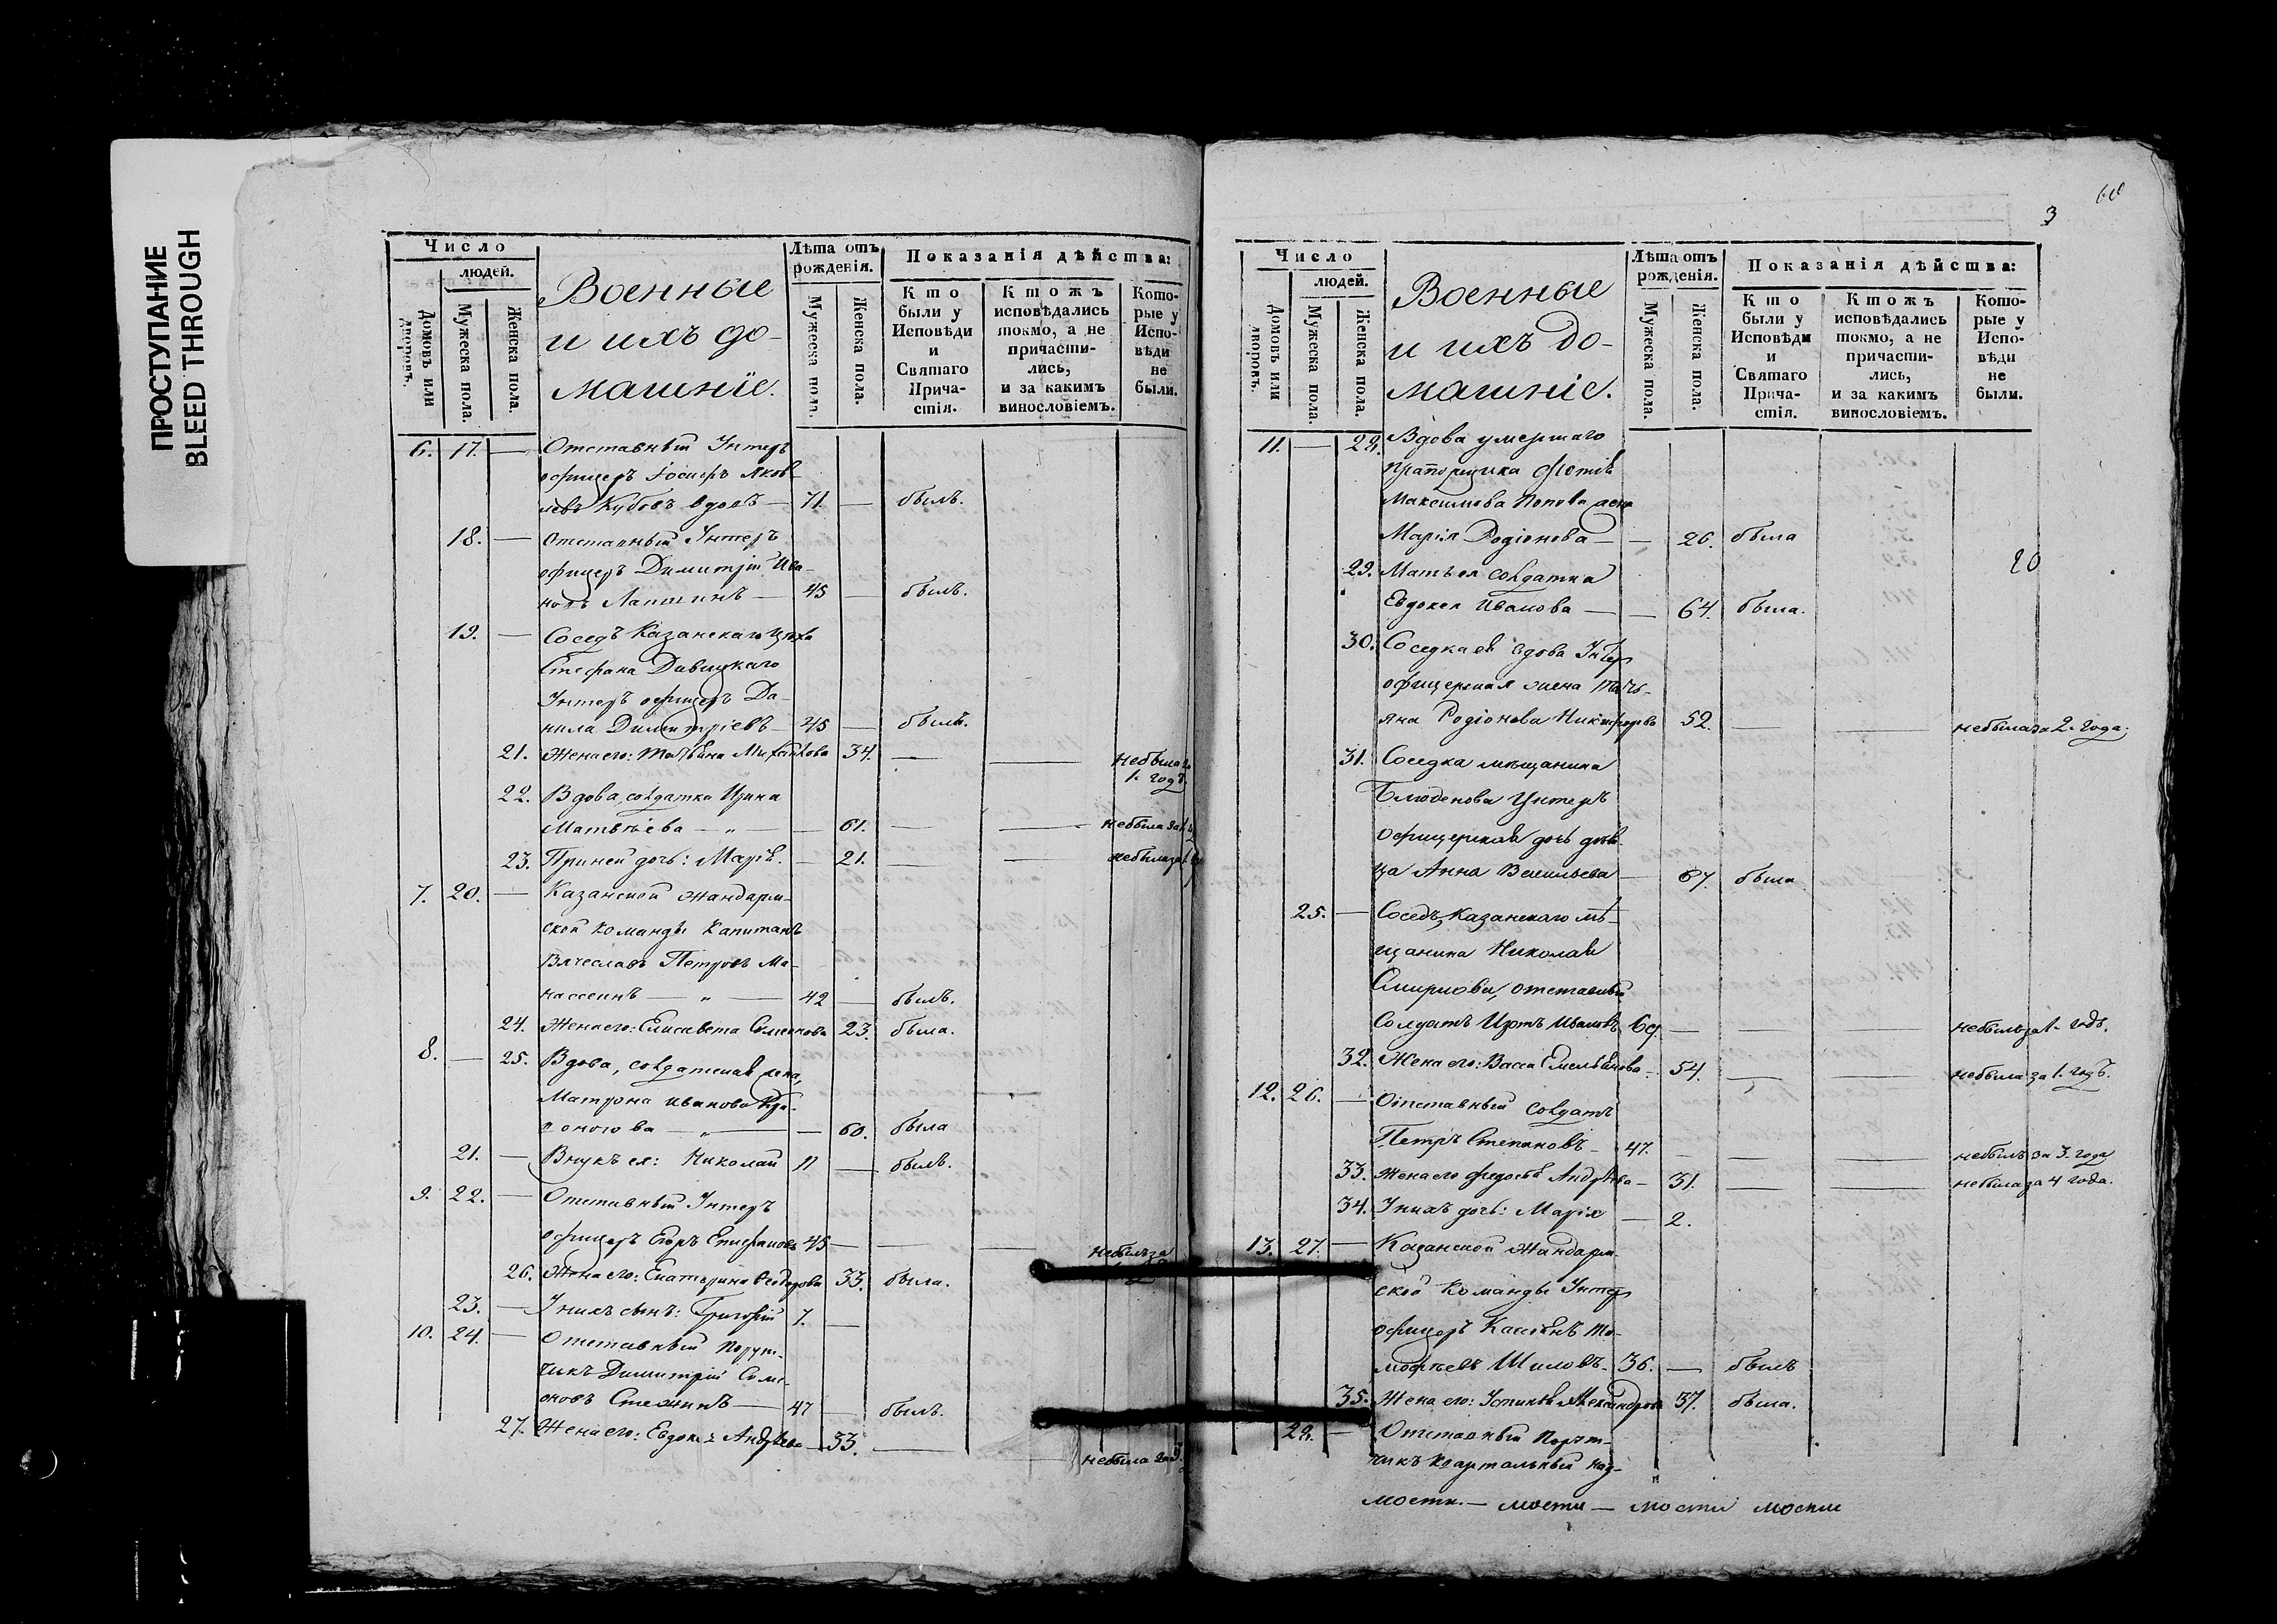 ПРОСТУПАНИЕ
BLEED THROUGH
Число
людей.
Домовъ или дворовъ.
Мужеска пола.
Женска пола.
Военные
и ихъ до-
машніе.
Лѣта отъ рожденія.
Мужеска пола.
Женска пола.
Показанія дѣйства:
Кто были у Исповѣди и Святаго Прича- стія.
Ктожъ исповѣдались токмо, а не причасти- лись, и за какимъ винословіемъ.
Кото- рые у Испо- вѣди не были.
6. 17. — Отставный Унтеръ
офицеръ Іосифъ Яков-
левъ Кубовъ вдовъ — 71. — былъ.
18. — Отставный Унтеръ
офицеръ Димитрій Ива-
новъ Лапшинъ — 45 — былъ.
19. — Соседъ Казанскаго цеха
Стефана Давицкаго
Унтеръ офицеръ Да-
нила Димитріевъ — 45 — былъ.
21. Жена его: Татьяна Михайлова 34. — — небыла за
1. годъ.
22. Вдова, солдатка Ирина
Матвѣева — „ — — 61. — — небыла за 1.
23. При ней дочь: Марія. — 21. — — небыла за 1.
7. 20. — Казанской Жандарм-
ской команды Капитанъ
Вячеславъ Петровъ Ма-
нассеинъ — „ — 42 — былъ.
24. Жена его: Елисавета Семенова 23. была.
8. — 25. Вдова, солдатская жена,
Матрона Иванова
— „ — — 60. была
21. — Внукъ ея: Николай 11 — былъ.
9. 22. — Отставный Унтеръ
офицеръ Егоръ Епифановъ 45 — — — небылъ за
26. Жена его: Екатерина Ѳедорова 33. была.
23. — У нихъ сынъ: Григорій 7. —
10. 24. — Отставный Порут-
чикъ Димитрій Семе-
оновъ Стяжкинъ — 47 — былъ.
27. Жена его: Евдокія Андреева — 33. — — небыла за 3.
60
3
Число
людей.
Домовъ или дворовъ.
Мужеска пола.
Женска пола.
Военные
и ихъ до-
машніе.
Лѣта отъ рожденія.
Мужеска пола.
Женска пола.
Показанія дѣйства:
Кто были у Исповѣди и Святаго Прича- стія.
Ктожъ исповѣдались токмо, а не причасти- лись, и за какимъ винословіемъ.
Кото- рые у Испо- вѣди не были.
11. — 28. Вдова умершаго
прапорщика Фотія
Максимова Попова жена
Марія Родіонова — — 26. была
20
29. Мать ея солдатка
Евдокея Иванова — — 64. была.
30. Соседка ея вдова Унтер
офицерская жена Татъ-
яна Родіонова Никифорова 52. — — небыла за 2. года.
31. Соседка мещанина
Блюденова Унтеръ
офицерская дочь деви-
ца Анна Васильева — 67. была
25. — Соседъ Казанскаго мѣ-
щанина Николая
Смирнова, отставный
солдатъ Иванъ Ивановъ 69. — — небылъ за 1. годъ.
32. Жена его: Васса Емельянова — 54. — — небыла за 1. годъ.
12. 26. — Отставный солдатъ
Петръ Степановъ — 47. — — — небылъ за 3. года
33. Жена его Федосья Андреева — 31. — — небыла за 4 года.
34. У нихъ дочь: Марія — 2.
13. 27. — Казанской Жандарм-
ской Команды Унтер
офицеръ Кассіянъ Ти-
мофеевъ Шиловъ. — 36. — былъ
35. Жена его: Устинья Александрова 37. была.
28. — Отставный Порут-
чикъ Квартальный над-
мости. — мости — мости мости